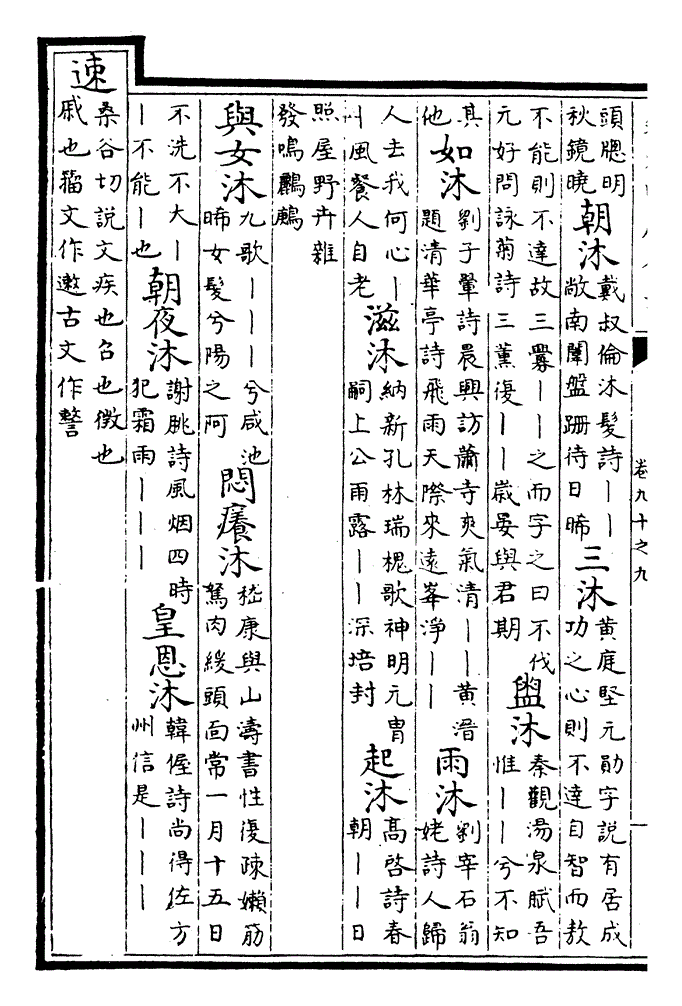 頭聰明
秋鏡曉
朝沐
戴叔倫沐髮詩丨丨
敞南闈盤跚待日晞
三沐
黃庭堅元勛字說有居成
功之心則不達自智而敖
不能則不達故三釁丨丨之而字之曰不伐
元好問詠菊詩三薰復丨丨歲晏與君期
盥沐
秦觀湯泉賦吾
惟丨丨兮不知
其
他
如沐
劉子翬詩晨興訪蕭寺爽氣清丨丨黃溍
題清華亭詩飛雨天際來遠峯淨丨丨
雨沐
劉宰石翁
姥詩人歸
人去我何心丨
風餐人自老
滋沐
納新孔林瑞槐歌神明元胄
嗣上公雨露丨丨深培封
起沐
高啓詩春
朝丨丨日
照屋野卉雜
發鳴鸝鶊
與女沐
九歌丨丨丨兮咸池
晞女髮兮陽之阿
悶癢沐
嵇康與山濤書性復疎嬾筋
駑肉緩頭面常一月十五日
不洗不大丨
丨不能丨也
朝夜沐
謝朓詩風烟四時
犯霜雨丨丨丨
皇恩沐
韓偓詩尚得佐方
州信是丨丨丨
速
桑谷切說文疾也召也徵也
戚也籀文作遬古文作警
卷九十之九
一